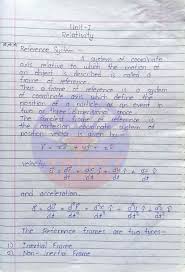 Unit-I
Relativity
Reference System -
A system of coordinate
axis relative to which the motion of
an object is described is called a
frame of reference.
Thus a frame of reference is a system
of coordinate axis which define the
position of a particle or an event in
two or three dimensional space.
The simplest frame of reference is
the cartesian coordinate system of
position vector is given by -
velocity
and acceleration
The Reference frames are two types-
1) Inertial Frame
2) Non-Inertial Frame